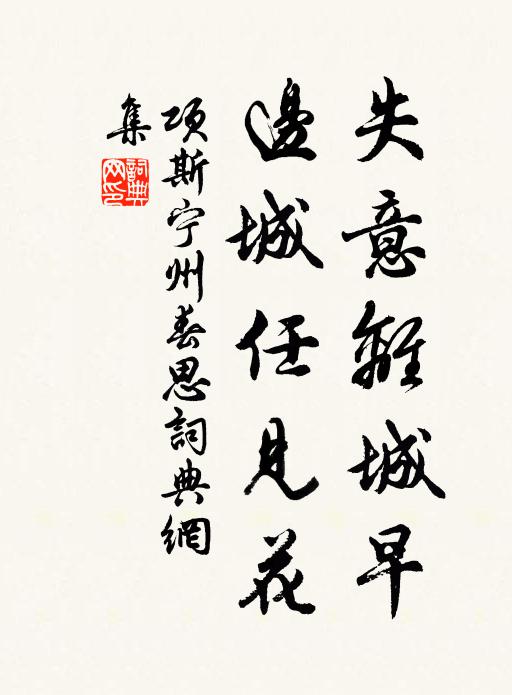 失意離城早
邊城任見花
項斯宁州春思詞典網
集
詞典網印